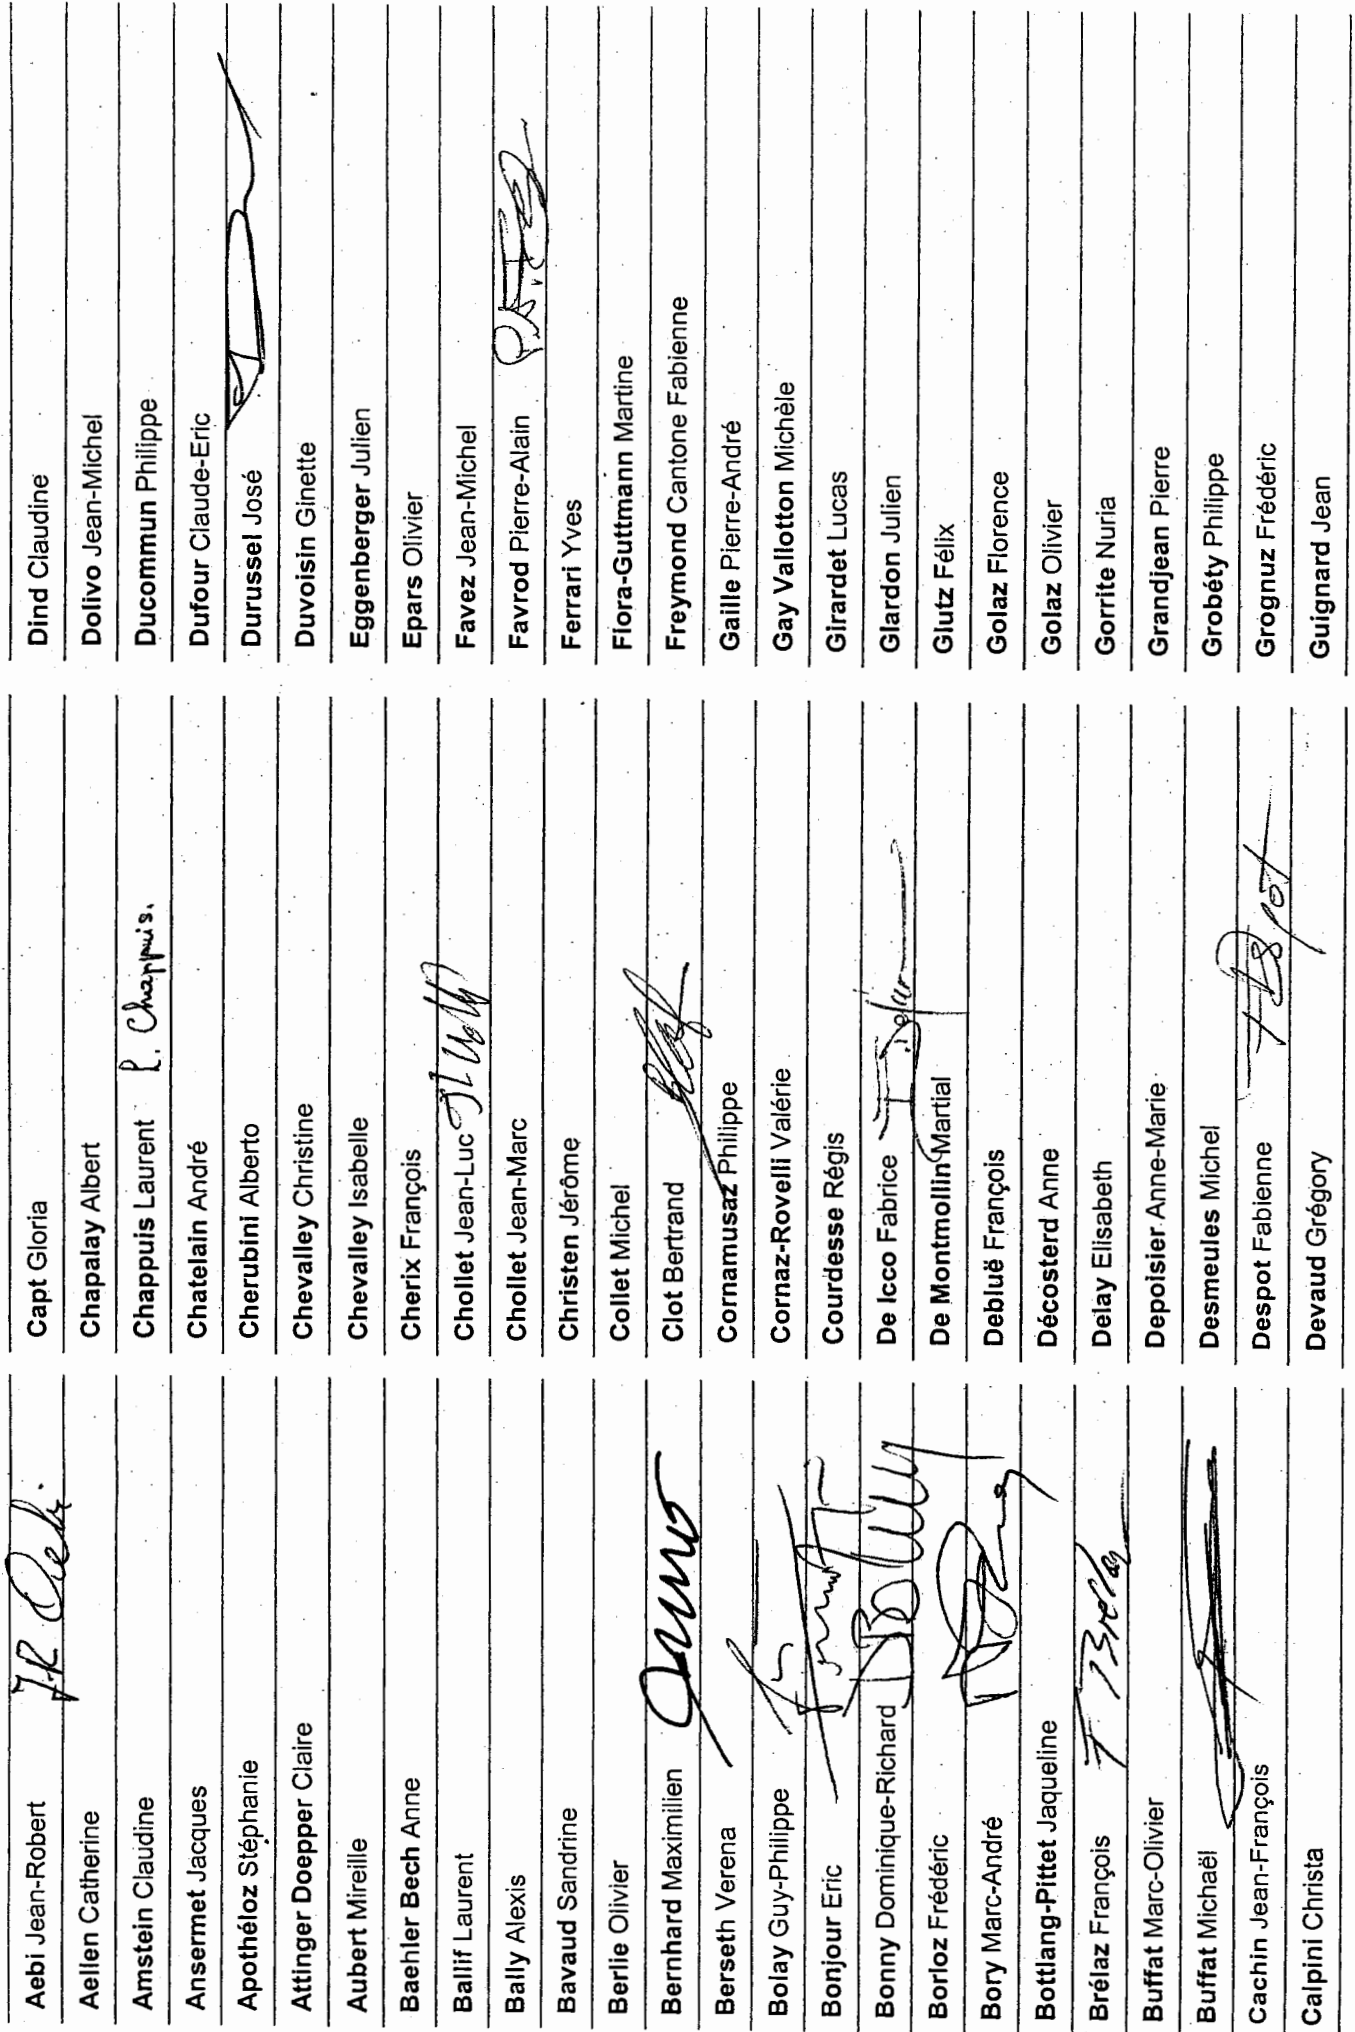 Aebi Jean-Robert J-R Aebi
Aellen Catherine
Amstein Claudine
Ansermet Jacques
Apothéloz Stéphanie
Attinger Doepper Claire
Aubert Mireille
Baehler Bech Anne
Ballif Laurent
Bally Alexis
Bavaud Sandrine
Berlie Olivier
Bernhard Maximilien
Berseth Verena
Bolay Guy-Philippe
Bonjour Eric
Bonny Dominique-Richard
Borloz Frédéric
Bory Marc-André
Bottlang-Pittet Jaqueline
Brélaz François
Buffat Marc-Olivier
Buffat Michaël
Cachin Jean-François
Calpini Christa
Capt Gloria
Chapalay Albert
Chappuis Laurent L. Chappuis.
Chatelain André
Cherubini Alberto
Chevalley Christine
Chevalley Isabelle
Cherix François
Chollet Jean-Luc
Chollet Jean-Marc
Christen Jérôme
Collet Michel
Clot Bertrand
Cornamusaz Philippe
Cornaz-Rovelli Valérie
Courdesse Régis
De Icco Fabrice
De Montmollin Martial
Debluë François
Décosterd Anne
Delay Elisabeth
Depoisier Anne-Marie
Desmeules Michel
Despot Fabienne
Devaud Grégory
Dind Claudine
Dolivo Jean-Michel
Ducommun Philippe
Dufour Claude-Eric
Durussel José
Duvoisin Ginette
Eggenberger Julien
Epars Olivier
Favez Jean-Michel
Favrod Pierre-Alain
Ferrari Yves
Flora-Guttmann Martine
Freymond Cantone Fabienne
Gaille Pierre-André
Gay Vallotton Michèle
Girardet Lucas
Glardon Julien
Glutz Félix
Golaz Florence
Golaz Olivier
Gorrite Nuria
Grandjean Pierre
Grobéty Philippe
Grognuz Frédéric
Guignard Jean